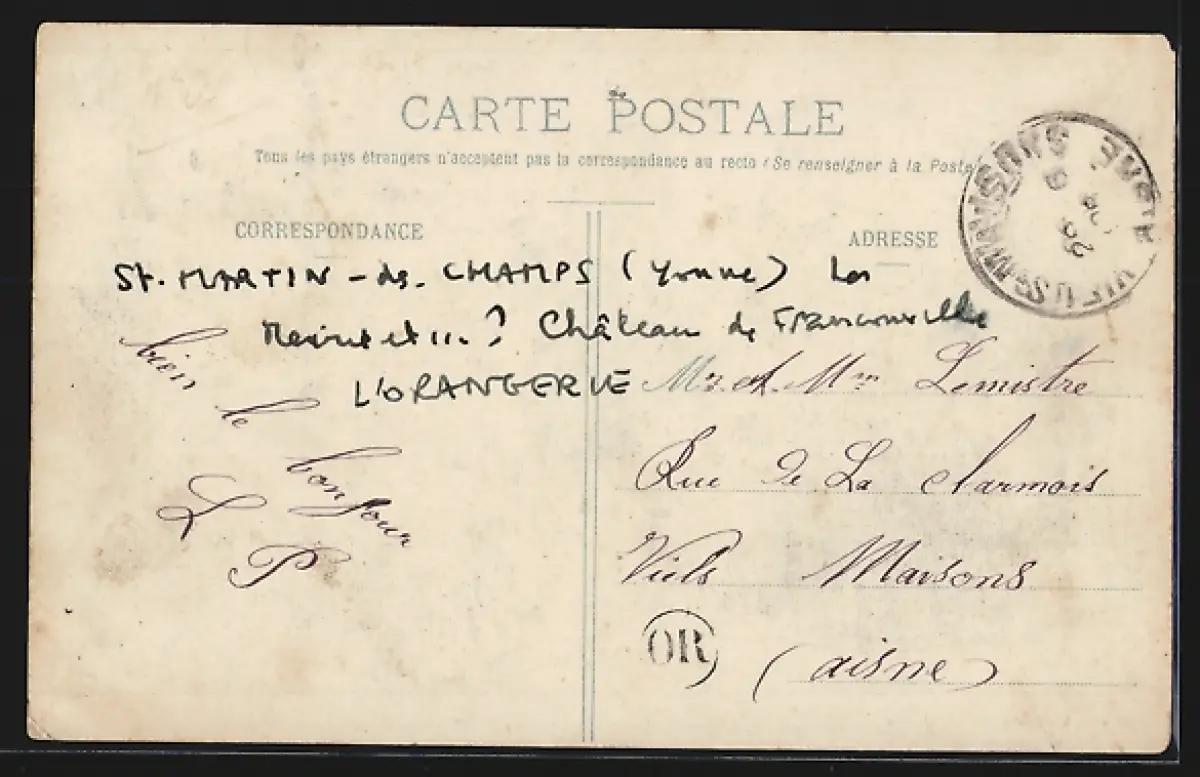 CARTE POSTALE
Tous les pays étrangers n'acceptent pas la correspondance au recto (Se renseigner à la Poste
CORRESPONDANCE
ADRESSE
St. MARTIN - des. CHAMPS (Yonne)
? Château de Franconville
L'ORANGERIE
bien
le
bonjour
L P
Mr. et. Mme Lemistre
Rue de La
Viels Maisons
(aisne)
OR